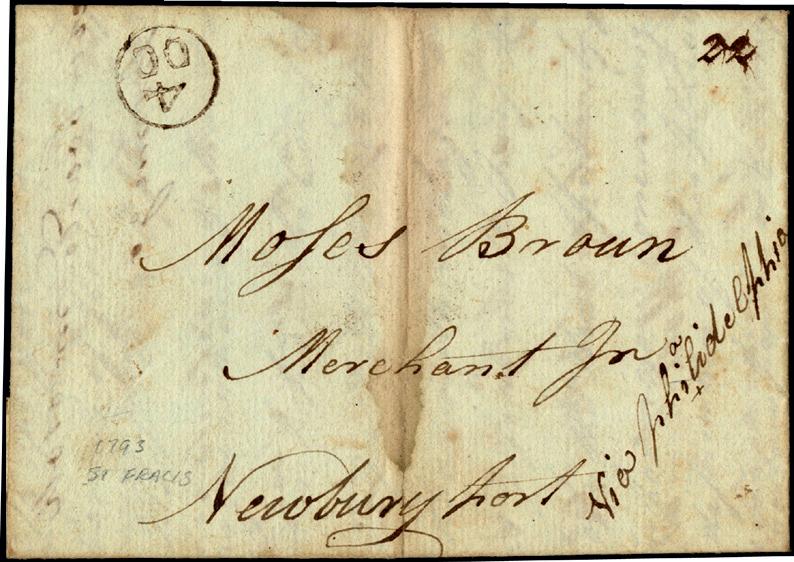 OC
4
22
Moses Broun
Merchant In
Newburyport
Via philidelphia
a
1793
ST FRACIS